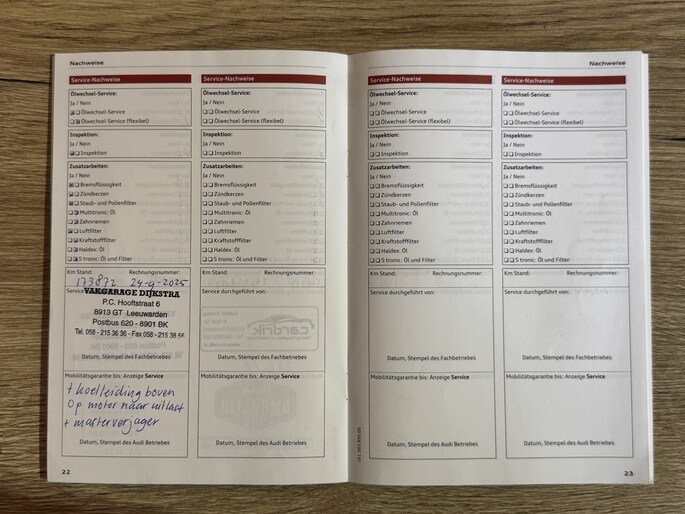 Nachweise
Service-Nachweise
Ölwechsel-Service:
Ja / Nein
Ölwechsel-Service
Ölwechsel-Service (flexibel)
Inspektion:
Ja / Nein
Inspektion
Zusatzarbeiten:
Ja / Nein
Bremsflüssigkeit
Zündkerzen
Staub- und Pollenfilter
Multitronic: Öl
Zahnriemen
Luftfilter
Kraftstofffilter
Haldex: Öl
S tronic: Öl und Filter
Km Stand: Rechnungsnummer:
173872 24-9-2025
Service
VAKGARAGE DIJKSTRA
P.C. Hooftstraat 6
8913 GT Leeuwarden
Postbus 620 - 8901 BK
Tel. 058 - 215 36 36 - Fax 058 - 215 38 56
Datum, Stempel des Fachbetriebes
Mobilitätsgarantie bis: Anzeige Service
+ koelleiding boven
op motor naar uitlaat
+ marterverjager
Datum, Stempel des Audi Betriebes
22
Service-Nachweise
Ölwechsel-Service:
Ja / Nein
Ölwechsel-Service
Ölwechsel-Service (flexibel)
Inspektion:
Ja / Nein
Inspektion
Zusatzarbeiten:
Ja / Nein
Bremsflüssigkeit
Zündkerzen
Staub- und Pollenfilter
Multitronic: Öl
Zahnriemen
Luftfilter
Kraftstofffilter
Haldex: Öl
S tronic: Öl und Filter
Km Stand: Rechnungsnummer:
Service durchgeführt von:
cardrik
Datum, Stempel des Fachbetriebes
Mobilitätsgarantie bis: Anzeige Service
Datum, Stempel des Audi Betriebes
Nachweise
Service-Nachweise
Ölwechsel-Service:
Ja / Nein
Ölwechsel-Service
Ölwechsel-Service (flexibel)
Inspektion:
Ja / Nein
Inspektion
Zusatzarbeiten:
Ja / Nein
Bremsflüssigkeit
Zündkerzen
Staub- und Pollenfilter
Multitronic: Öl
Zahnriemen
Luftfilter
Kraftstofffilter
Haldex: Öl
S tronic: Öl und Filter
Km Stand: Rechnungsnummer:
Service durchgeführt von:
Datum, Stempel des Fachbetriebes
Mobilitätsgarantie bis: Anzeige Service
Datum, Stempel des Audi Betriebes
Service-Nachweise
Ölwechsel-Service:
Ja / Nein
Ölwechsel-Service
Ölwechsel-Service (flexibel)
Inspektion:
Ja / Nein
Inspektion
Zusatzarbeiten:
Ja / Nein
Bremsflüssigkeit
Zündkerzen
Staub- und Pollenfilter
Multitronic: Öl
Zahnriemen
Luftfilter
Kraftstofffilter
Haldex: Öl
S tronic: Öl und Filter
Km Stand: Rechnungsnummer:
Service durchgeführt von:
Datum, Stempel des Fachbetriebes
Mobilitätsgarantie bis: Anzeige Service
Datum, Stempel des Audi Betriebes
23